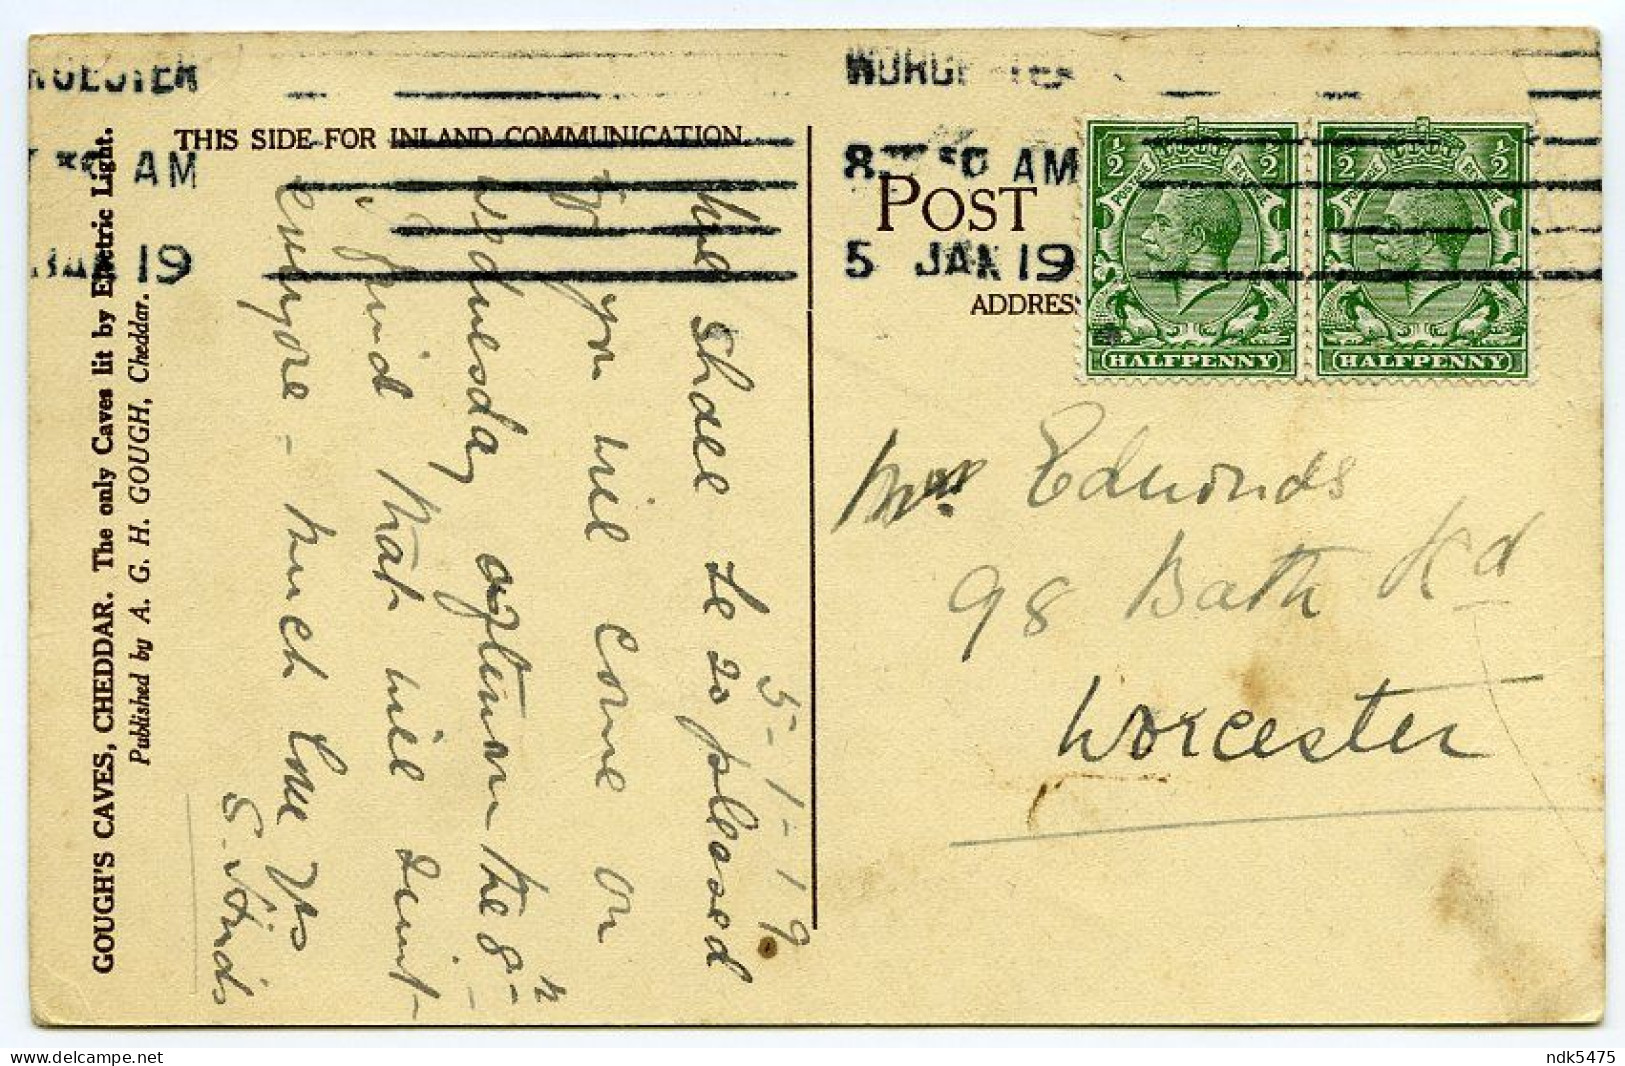 WORCESTER
AM
JAN 19
WORCESTER
8 30 AM
5 JAN 19
THIS SIDE FOR INLAND COMMUNICATION.
POST
ADDRES
½ ½
POSTAGE REVENUE
HALFPENNY
½ ½
POSTAGE REVENUE
HALFPENNY
GOUGH'S CAVES, CHEDDAR. The only Caves lit by Electric Light.
Published by A. G. H. GOUGH, Cheddar.
5-1-19
We shall be so pleased
if you will come on
Wednesday afternoon the 8th
I find that will suit
everyone - much love yrs
S. Hinds
Mrs Edmonds
98 Bath Rd
Worcester
ndk5475